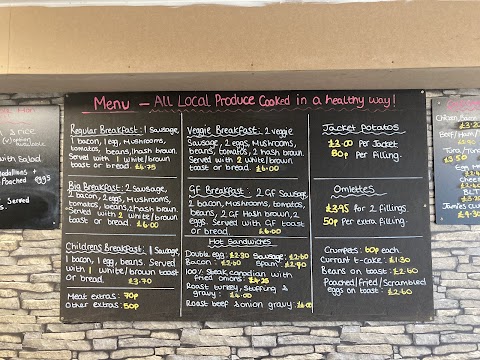 Menu - ALL Local Produce Cooked in a healthy way!
Regular Breakfast: 1 Sausage,
1 bacon, 1 egg, Mushrooms,
tomatos, beans, 2 hash brown.
Served with 1 white/brown
toast or bread. £6.75
Big Breakfast: 2 Sausages,
2 bacon, 2 eggs, Mushrooms,
tomatos, beans, 2 hash brown.
Served with 2 white/brown
toast or bread. £6.00
Childrens Breakfast: 1 Sausage,
1 bacon, 1 egg, beans. Served
with 1 white/brown toast
or bread. £3.70
Meat extras: 70p
Other extras: 50p
Veggie Breakfast: 2 veggie
Sausage, 2 eggs, Mushrooms,
beans, tomatos, 2 hash brown.
Served with 2 white/brown
toast or bread. £6.00
GF Breakfast: 2 GF Sausage,
2 bacon, Mushrooms, tomatos,
beans, 2 GF Hash brown, 2
eggs. Served with GF toast
or bread. £6.00
Hot Sandwiches
Double egg: £2.30 Sausage: £2.60
Bacon: £2.60 Spam: £2.40
100% Steak canadian with
fried onions: £4.25
Roast turkey, stuffing &
gravy: £6.00
Roast beef & onion gravy: £6.00
Jacket Potatos
£3.00 Per Jacket
80p Per Filling.
Omlettes
£3.95 for 2 fillings.
50p Per extra filling.
Crumpets: 60p each.
Currant t-cake: £1.30
Beans on toast: £2.60
Poached/fried/Scrambled
eggs on toast: £2.60
& rice
with Salad
Poached eggs
Served